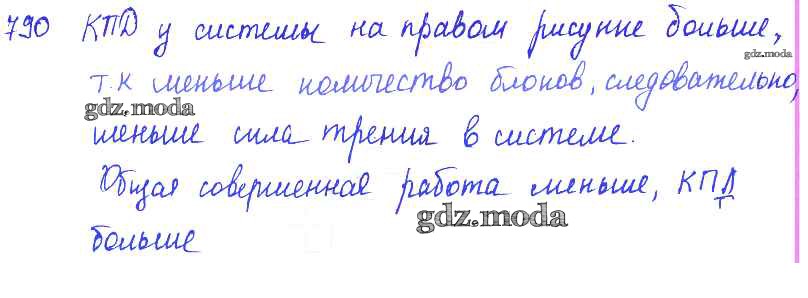 790 КПД у системы на правом рисунке больше,
gdz.moda
т.к меньше количество блоков, следовательно,
gdz.moda
меньше сила трения в системе.
Общая совершенная работа меньше, КПД
gdz.moda
больше